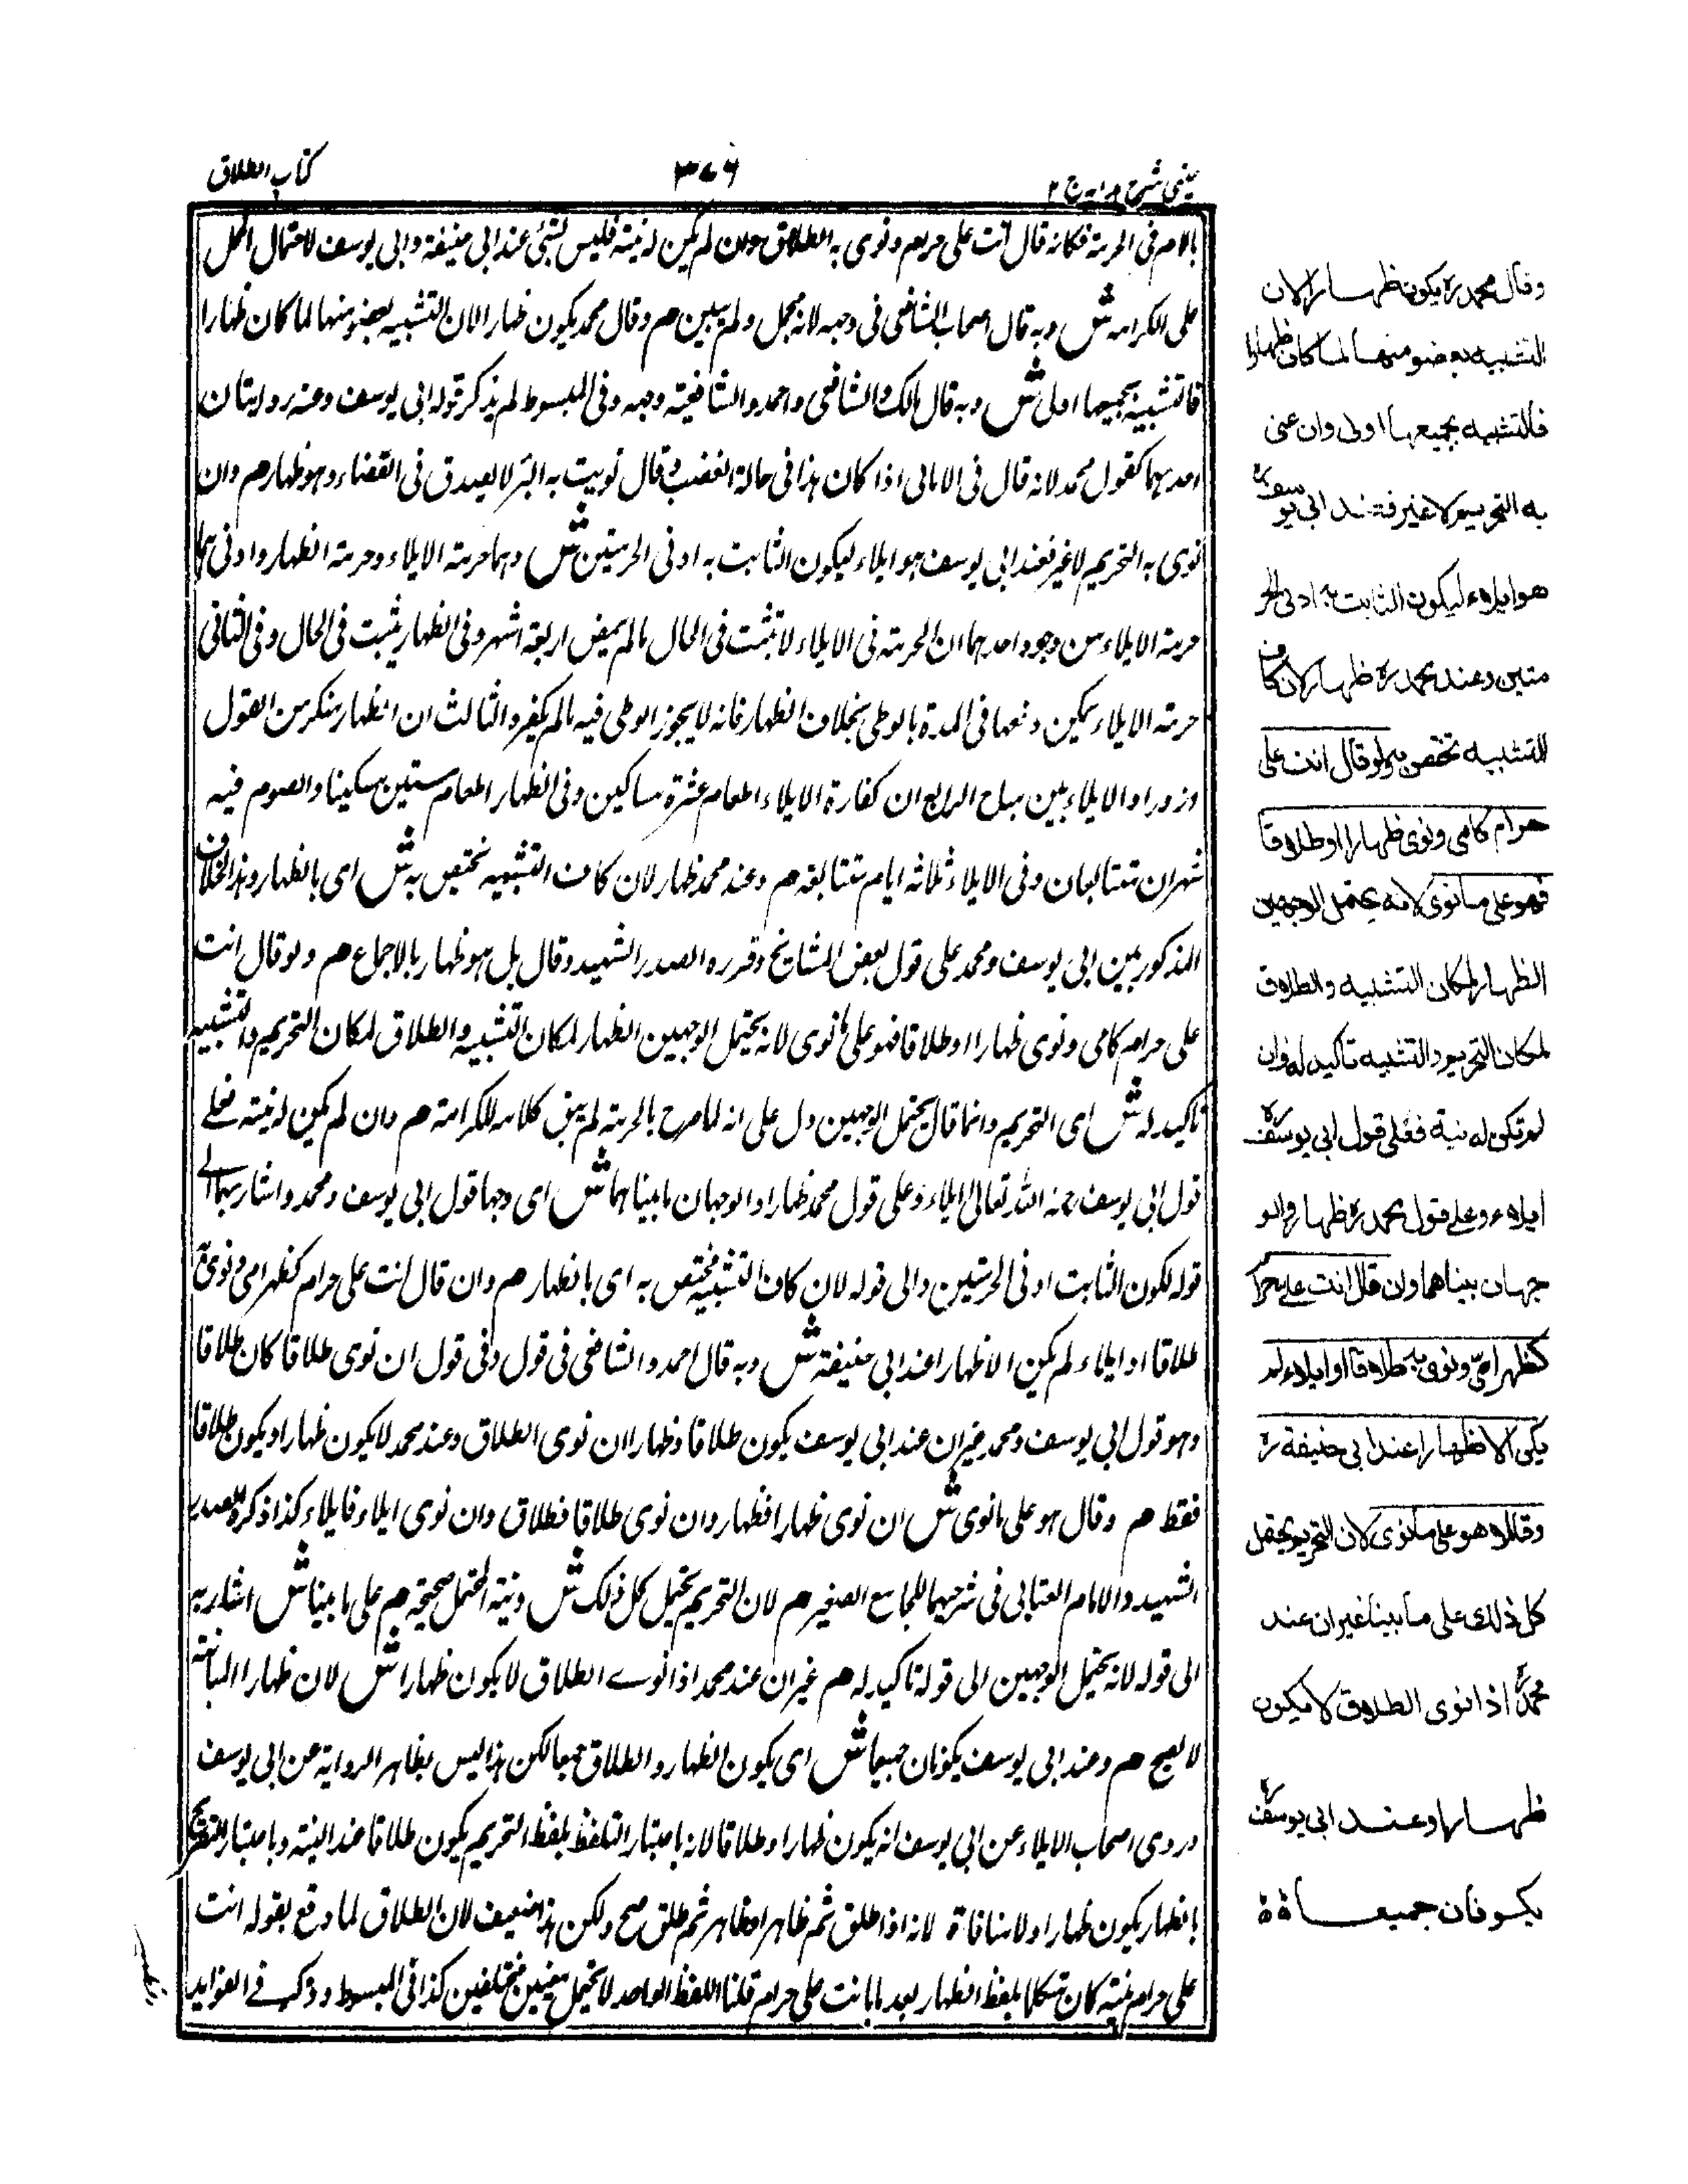 عينى شرح هدايه ج ٢
٣٧٦
كتاب الطلاق
بالام فى الحرمة فكانه قال انت على حرام ونوى به الطلاق وان لم يكن له نية فليس بشئ عند ابى حنيفة وابى يوسف لاحتمال الحمل
على الكرامة ش وبه قال اصحاب الشافعى فى وجه لانه مجمل ولم يبين م وقال محمد يكون ظهارا لان التشبيه بعضو منها لما كان ظهارا
فالتشبيه بجميعها اولى ش وبه قال مالك والشافعى واحمد والشافعية وجه وفى المبسوط لم يذكر قول ابى يوسف وعنه روايتان
احدهما كقول محمد لانه قال فى الامالى اذا كان هذا فى حالة الغضب وقال نويت به البر لا يصدق فى القضاء وهو ظهار م وان
نوى به التحريم لا غير فعند ابى يوسف هو ايلاء ليكون الثابت به ادنى الحرمتين ش وهما حرمة الايلاء وحرمة الظهار وادنى هما
حرمة الايلاء من وجوه احدهما ان الحرمة فى الايلاء لا تثبت فى الحال ما لم يمض اربعة اشهر وفى الظهار يثبت فى الحال وفى الثانى
حرمة الايلاء يمكن دفعها فى المدة بالوطى بخلاف الظهار فانه لا يجوز الوطى فيه ما لم يكفر والثالث ان الظهار منكر من القول
وزورا والايلاء يمين مباح الرابع ان كفارة الايلاء اطعام عشرة مساكين وفى الظهار اطعام ستين مسكينا والصوم فيه
شهران متتابعان وفى الايلاء ثلاثه ايام متتابعة م وعند محمد ظهار لان كاف التشبيه تختص به ش اى بالظهار وهذا الخلاف
المذكور بين ابى يوسف ومحمد على قول بعض المشايخ وقرره الصدر الشهيد وقال بل هو ظهار بالاجماع م ولو قال انت
على حرام كامى ونوى ظهارا او طلاقا فهو على ما نوى لانه يحتمل الوجهين الظهار لمكان التشبيه والطلاق لمكان التحريم والتشبيه
تاكيد له ش اى التحريم وانما قال يحتمل الوجهين دل على انه لما صرح بالحرمة لم يبق كلامه للكرامة م وان لم يكن له نية فعلى
قول ابى يوسف رحمه الله تعالى ايلاء وعلى قول محمد ظهار والوجهان ما بيناهما ش اى وجها قول ابى يوسف ومحمد واشار بهما الى
قوله ليكون الثابت ادنى الحرمتين والى قوله لان كاف التشبيه مختص به اى بالظهار م وان قال انت على حرام كظهر امى ونوى به
طلاقا او ايلاء لم يكن الا ظهارا عند ابى حنيفة ش وبه قال احمد والشافعى فى قول وفى قول ان نوى طلاقا كان طلاقا
وهو قول ابى يوسف ومحمد غير ان عند ابى يوسف يكون طلاقا وظهارا ان نوى الطلاق وعند محمد لا يكون ظهارا ويكون طلاقا
فقط م وقالا هو على ما نوى ش ان نوى ظهارا فظهار وان نوى طلاقا فطلاق وان نوى ايلاء فايلاء كذا ذكره الصدر
الشهيد والامام العتابى فى شرحيهما للجامع الصغير م لان التحريم يحتمل كل ذلك ش ونية المحتمل صحيحة م على ما بينا ش اشار به
الى قوله لانه يحتمل الوجهين الى قوله تاكيد له م غير ان عند محمد اذا نوى الطلاق لا يكون ظهارا ش لان ظهار المبانة
لا يصح م وعند ابى يوسف يكونان جميعا ش اى يكون الظهار والطلاق جميعا لكن هذا ليس بظاهر الرواية عن ابى يوسف
وروى اصحاب الايلاء عن ابى يوسف انه يكون ظهارا وطلاقا لانه باعتبار التلفظ بلفظ التحريم يكون طلاقا عند النية وباعتبار التصريح
بالظهار يكون ظهارا ولا منافاة لانه اذا طلق ثم ظاهر او ظاهر ثم طلق صح ولكن هذا ضعيف لان الطلاق لما وقع بقوله انت
على حرام بنيته كان متكلما بلفظ الظهار بعد ما بانت على حرام قلنا اللفظ الواحد لا يحتمل معنيين مختلفين كذا فى المبسوط وذكر فى الفوايد
وقال محمد ره يكون ظهارا لان
التشبيه بعضو منها لما كان ظهارا
فالتشبيه بجميعها اولى وان عنى
به التحريم لا غير فعند ابى يوسف ره
هو ايلاء ليكون الثابت به ادنى الحر
متين وعند محمد ره ظهار لان كاف
التشبيه تختص به ولو قال انت على
حرام كامى ونوى ظهارا او طلاقا
فهو على ما نوى لانه يحتمل الوجهين
الظهار لمكان التشبيه والطلاق
لمكان التحريم والتشبيه تاكيد له وان
لم تكن له نية فعلى قول ابى يوسف ره
ايلاء وعلى قول محمد ره ظهار والو
جهان بيناهما وان قال انت على حرا
كظهر امى ونوى به طلاقا او ايلاء لم
يكن الا ظهارا عند ابى حنيفة ره
وقالا هو على ما نوى لان التحريم يحتمل
كل ذلك على ما بينا غير ان عند
محمد اذا نوى الطلاق لا يكون
ظهارا وعند ابى يوسف ره
يكونان جميعا